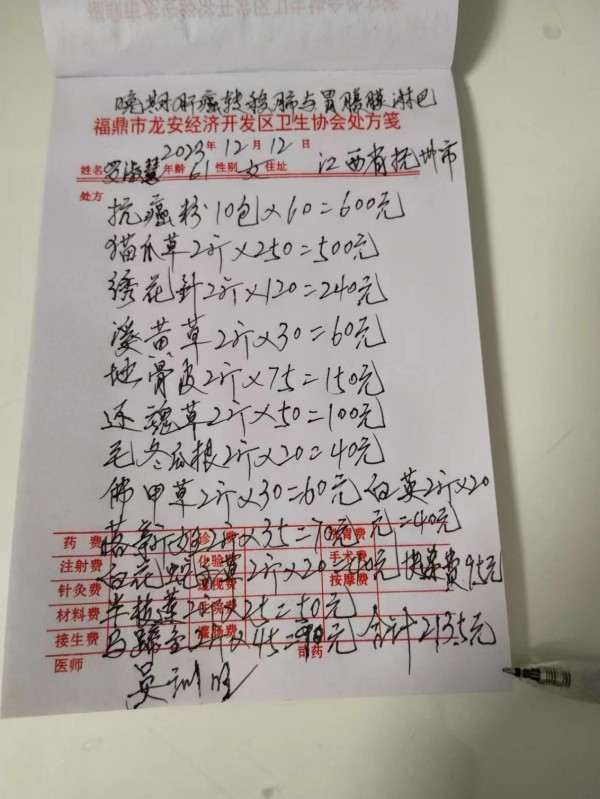 晚期肝癌转移肺与胃膈膜淋巴
福鼎市龙安经济开发区卫生协会处方笺
2023年12月12日
姓名 年龄61性别女住址 江西省抚州市
处方
抗癌粉10包×60=600元
猫爪草2斤×250=500元
绣花针2斤×120=240元
溪黄草2斤×30=60元
地骨皮2斤×75=150元
还魂草2斤×50=100元
毛冬瓜根2斤×20=40元
佛甲草2斤×30=60元 白英2斤×20
元=40元
药费 2斤×35=70元
注射费 化验费 手术费
白花蛇舌草2斤×20=40元 快递费95元
针灸费 按摩费
材料费 半枝莲2斤×25=50元
接生费 马蹄金2斤×45=90元 合计2135元
医师 司药